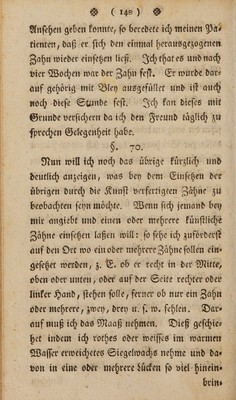 ( 140 )
Ansehen geben konnte, so beredete ich meinen Pa-
tienten, daß er sich den einmal herausgezogenen
Zahn wieder einsetzen ließ. Ich that es und nach
vier Wochen war der Zahn fest. Er wurde dar-
auf gehörig mit Bley ausgefüllet und ist auch
noch diese Stunde fest. Ich kan dieses mit
Grunde versichern da ich den Freund täglich zu
sprechen Gelegenheit habe.
§. 70.
Nun will ich noch das übrige kürzlich und
deutlich anzeigen, was bey dem Einsetzen der
übrigen durch die Kunst verfertigten Zähne zu
beobachten seyn möchte. Wenn sich jemand bey
mir angiebt und einen oder mehrere künstliche
Zähne einsetzen lassen will: so sehe ich zuförderst
auf den Ort wo ein oder mehrere Zähne sollen ein-
gesetzet werden, z. E. ob er recht in der Mitte,
oben oder unten, oder auf der Seite rechter oder
linker Hand, stehen solle, ferner ob nur ein Zahn
oder mehrere, zwey, drey u. s. w. fehlen. Dar-
auf muß ich das Maaß nehmen. Dieß geschie-
het indem ich rothes oder weisses im warmen
Wasser erweichetes Siegelwachs nehme und da-
von in eine oder mehrere lücken so viel hinein-
brin-